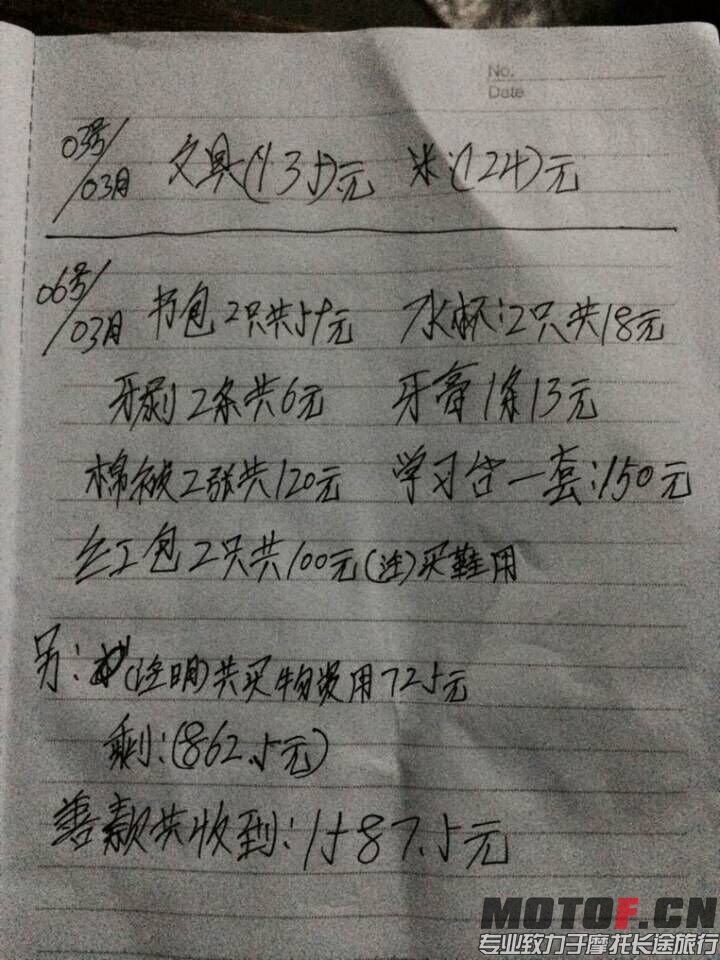 No.
Date
03号/03月 文具(135)元 米:(124)元
06号/03月 书包2只共59元 水杯:2只共18元
牙刷2条共6元 牙膏1条13元
棉被2张共120元 学习台一套:150元
红包2只共100元(注)买鞋用
另:(注明)共买物费用725元
剩:(862.5元)
善款共收到:1587.5元
MOTOF.CN
专业致力于摩托长途旅行